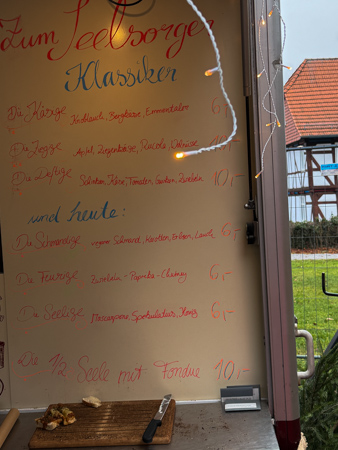 Zum Seelsorger
Klassiker
Die Käsige Knoblauch, Bergkäse, Emmentaler 6,-
Die Apfel, Ziegenkäse, Rucola,
Die Deftige Schinken, Käse, Tomaten, Gurken, Zwiebeln 10,-
und heute:
Die Schmandige Schmand, Karotten, Erbsen, Lauch 6,-
Die Feurige Zwiebeln-Paprika-Chutney 6,-
Die Seelige Mascarpone, Spekulatius, Honig 6,-
Die 1/2 Seele mit Fondue 10,-